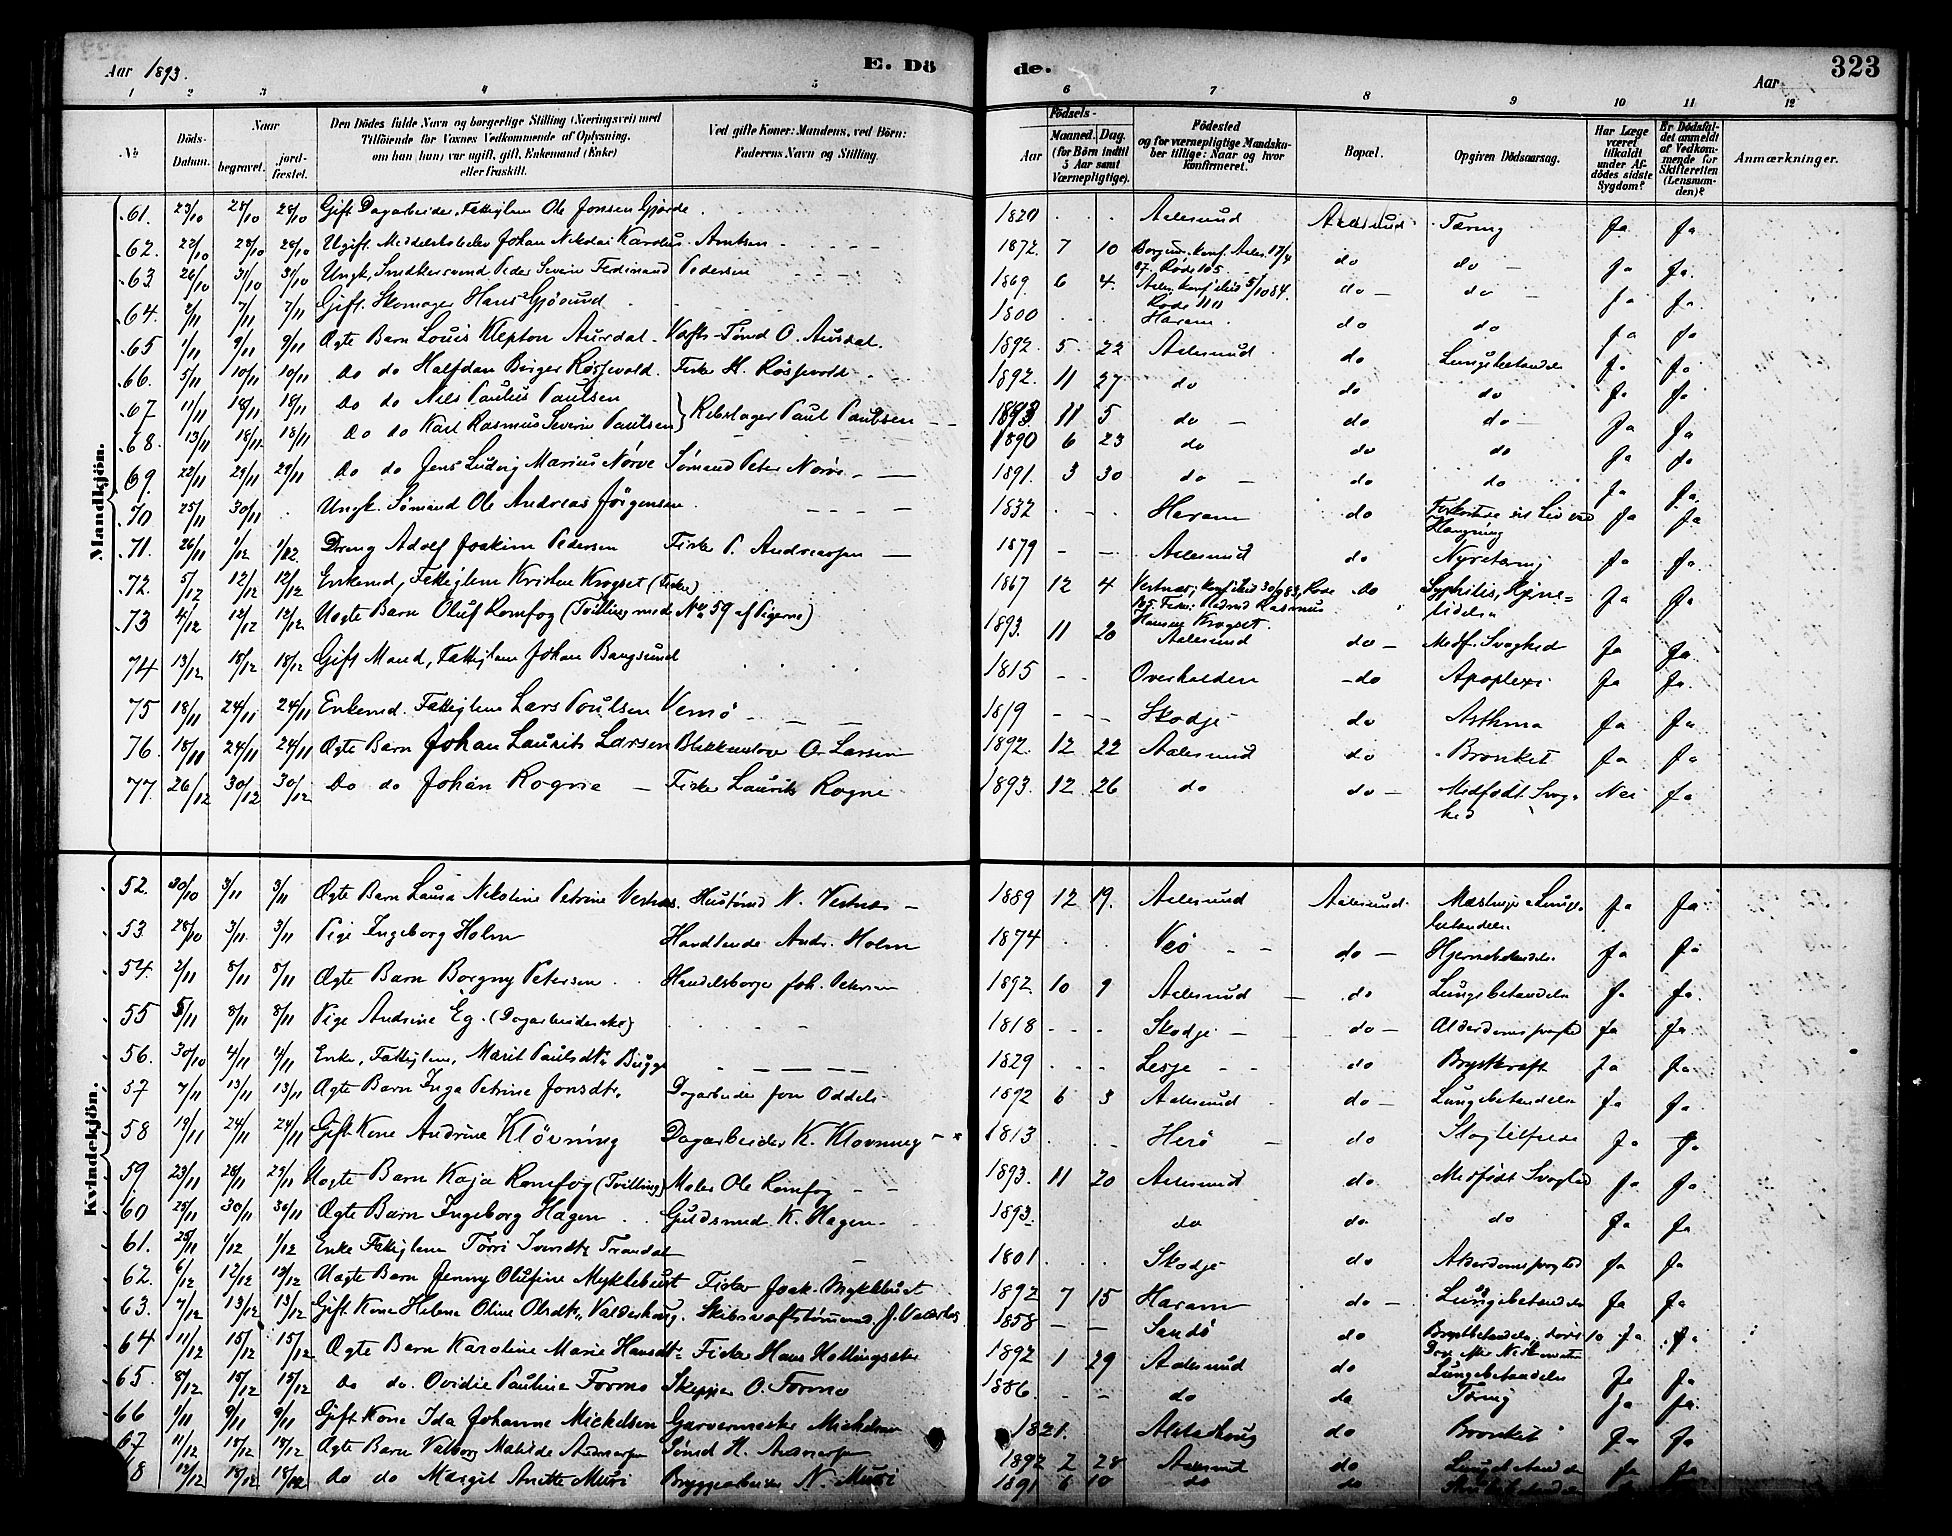 Aar 1893.
E. Dö
de.
Aar
323
1 2 3 4 5 6 7 8 9 10 11 12
No
Döds-Datum.
Naar
begravet.
jord-fæstet.
Den Dödes fulde Navn og borgerlige Stilling (Næringsvei) med
Tilföiende for Voxnes Vedkommende af Oplysning,
om han (hun) var ugift, gift, Enkemand (Enke)
eller fraskilt.
Ved gifte Koner: Mandens, ved Börn:
Faderens Navn og Stilling.
Födsels-
Aar
Maaned. Dag.
(for Börn indtil
5 Aar samt
Værnepligtige).
Födested
og for værnepligtige Mandska-
ber tillige: Naar og hvor
konfirmeret.
Bopæl.
Opgiven Dödsaarsag.
Har Læge
været
tilkaldt
under Af-
dödes sidste
Sygdom?
Er Dödsfal-
det anmeldt
af Vedkom-
mende for
Skifteretten
(Lensman-
den)?
Anmærkninger.
Mandkjön.
61. 23/10 28/10 28/10 Gift Dagarbeider, Fattiglem Ole Jonsen Gjørde 1820 Aalesund Aalesund Tæring Ja Ja
62. 22/10 28/10 28/10 Ugift Middelskolelev Johan Nikolai Karolius Arntsen 1872 7 10 Borgund, konf. Aales. 17/4 87. Rode 105 do do Ja Ja
63 26/10 31/10 31/10 Ungk. Snedkersvend Peder Severin Ferdinand Pedersen 1869 6 4. 5/10 84. Rode 1111 do do Ja Ja
64. 2/11 7/11 7/11 Gift. Skomager Hans Gjøsund 1800 Haram do do Ja Ja
65 1/11 9/11 9/11 Ægte Barn Louis Klepton Aurdal O. Aurdal. 1892 5 22 Aalesund do Lungebetændelse Ja Ja
66. 5/11 10/11 10/11 Do do Halfdan Birger Røssevold. Fisker H. Røssevold 1892. 11 27 do do do Ja Ja
67 11/11 18/11 18/11 Do do Nils Paulius Paulsen } Rebslager Paul Paulsen 1893 11 5 do do do Ja Ja
68. 13/11 18/11 18/11 Do do Karl Rasmus Severin Paulsen 1890 6 23 do do do Ja Ja
69. 22/11 29/11 29/11 Do do Jens Ludvig Marius Nørve Sømand Peter Nørve 1891. 3 30 do do do Ja Ja
70 25/11 30/11 Ungk. Sømand Ole Andreas Jørgensen 1832 Haram do Forkortede sit Liv ved Hængning Ja Ja
71. 26/11 1/12 1/12 Dreng Adolf Joakim Pedersen Fisker P. Andreassen 1879 Aalesund do Ja Ja
72. 5/12 12/12 12/12 Enkemd, Fattiglem Kristen Krogset (Fisker) 1867 12 4 Rasmus Hansen Krogset. do Syphilis, Hjerne-lidelse Ja Ja
73 4/12 12/12 12/12 Uægte Barn Oluf Romfog (Tvilling med No 59 af Pigerne) 1893. 11 20 Aalesund do Medf. Svaghed Ja Ja
74 13/12 18/12 18/12 Gift Mand, Fattiglem Johan Bangsund 1815 Overhalden do Apoplexi Ja Ja
75 18/11 24/11 24/11 Enkemd. Fattiglem Lars Poulsen Vemø 1819 Skodje do Asthma Ja Ja
76. 18/11 24/11 24/11 Ægte Barn Johan Laurits Larsen Blikkenslager O. Larsen 1892. 12 22 Aalesund do Bronket Ja Ja
77. 26/12 30/12 30/12 Do do Johan Rogne Fisker Laurits Rogne 1893. 12 26 do do Medfødt Svag-hed Nei Ja
Kvindekjön.
52. 30/10 3/11 3/11 Ægte Barn Laura Nikoline Petrine Vestnæs. Hustømd N. Vestnæs 1889 12 19. Aalesund Aalesund Mæslinge Lunge-betændelse Ja Ja
53. 28/10 3/11 3/11 Pige Ingeborg Holm Handlende Andr. Holm 1874 Veø do Hjernebetændelse Ja Ja
54. 2/11 8/11 8/11 Ægte Barn Borgny Petersen Handelsborger Joh. Petersen 1892. 10 9 Aalesund do Lungebetændelse Ja Ja
55 5/11 8/11 8/11 Pige Andrine Eg. (Dagarbeiderske) 1818 Skodje do Alderdomssvaghed Ja Ja
56. 30/10 4/11 4/11 Enke, Fattiglem, Marit Paulsdtr Bugge 1829 Lesje do Brystkræft Ja Ja
57 7/11 13/11 13/11 Ægte Barn Inga Petrine Jonsdtr. Dagarbeider Jon Oddeli 1892 6 3 Aalesund do Lungebetændelse Ja Ja
58 19/11 24/11 24/11 Gift Kone Andrine Kløvning Dagarbeider K. Kløvning 1813 Herø do Slagtilfælde Ja Ja
59 23/11 28/11 29/11 Uægte Barn Kaja Romfog (Tvilling) Maler Ole Romfog 1893. 11 20 Aalesund do Medfødt Svaghed Ja Ja
60 25/11 30/11 30/11 Ægte Barn Ingeborg Hagen Guldsmed K. Hagen 1893. do do do Ja Ja
61. 25/11 1/12 1/12 Enke Fattiglem Torri Iversdtr Trandal 1801. Skodje do Alderdomssvaghed Ja Ja
62. 6/12 12/12 12/12 Uægte Barn Jenny Olufine Myklebust Fisker Joak. Myklebust 1892 7 15 Haram do Lungebetændelse Ja Ja
63. 7/12 13/12 13/12 Gift Kone Helene Oline Olsdtr. Valderhaug. J. Valderhaug 1858 Sandø do Brystbetændelse, Ja Ja
64 11/12 15/12 15/12 Ægte Barn Karoline Marie Hansdtr Fisker Hans Hollingsæter 1892 1 29 Aalesund do Lungebetændelse Ja Ja
65. 8/12 15/12 15/12 Do do. Ovidie Pauline Formo Skipper O. Formo 1886. do do Tæring Ja Ja
66 1/11 9/11 9/11 Gift Kone Ida Johanne Mickelsen Garvermester Mickelsen 1821. Alstahoug do Bronket Ja Ja
67. 11/12 18/12 18/12 Ægte Barn Valborg Matilde Andreassen Sømd H. Andreassen 1892 2 28 Aalesund do Lungebetændelse Ja Ja
8 12/12 18/12 18/12 do do Margit Anette Muri Bryggearbeider N. Muri 1891 6 10 do do Ja Ja